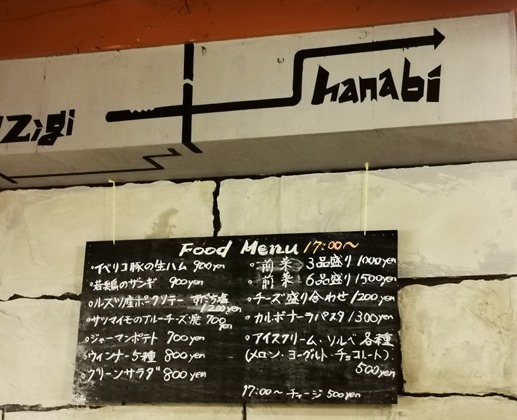 zigi
hanabi
Food Menu 17:00〜
・イベリコ豚の生ハム 900yen
・若鶏のザンギ 900yen
・ルスツ産ポークソテー すだち塩
1200yen
・サツマイモのブルーチーズ焼 700yen
・ジャーマンポテト 700yen
・ウィンナー5種 800yen
・グリーンサラダ 800yen
・前菜 3品盛り 1000yen
・前菜 6品盛り 1500yen
・チーズ盛り合わせ 1200yen
・カルボナーラパスタ 1300yen
・アイスクリーム・ソルベ 各種
(メロン・ヨーグルト・チョコレート)
500yen
17:00〜 チャージ 500yen